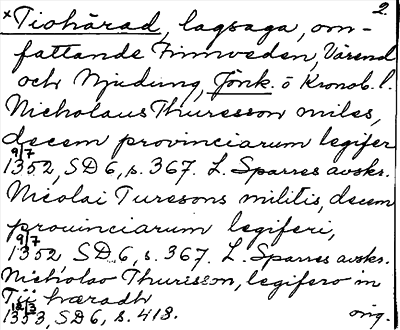 2.
×Tiohärad, lagsaga, om-
fattande Finnveden, Värend
och Njudung, Jönk. o Kronob. l.
Nicholaus Thuresson miles,
decem provinciarum legifer
9/7
1352, SD 6, s. 367. L. Sparres avskr.
Nicolai Turesons militis, decem
prouinciarum legiferi,
9/7
1352 SD 6, s. 367. L. Sparres avskr.
Nicholao Thurisson, legifero in
Tii hæradh
12/3
1353, SD 6, s. 418. orig.